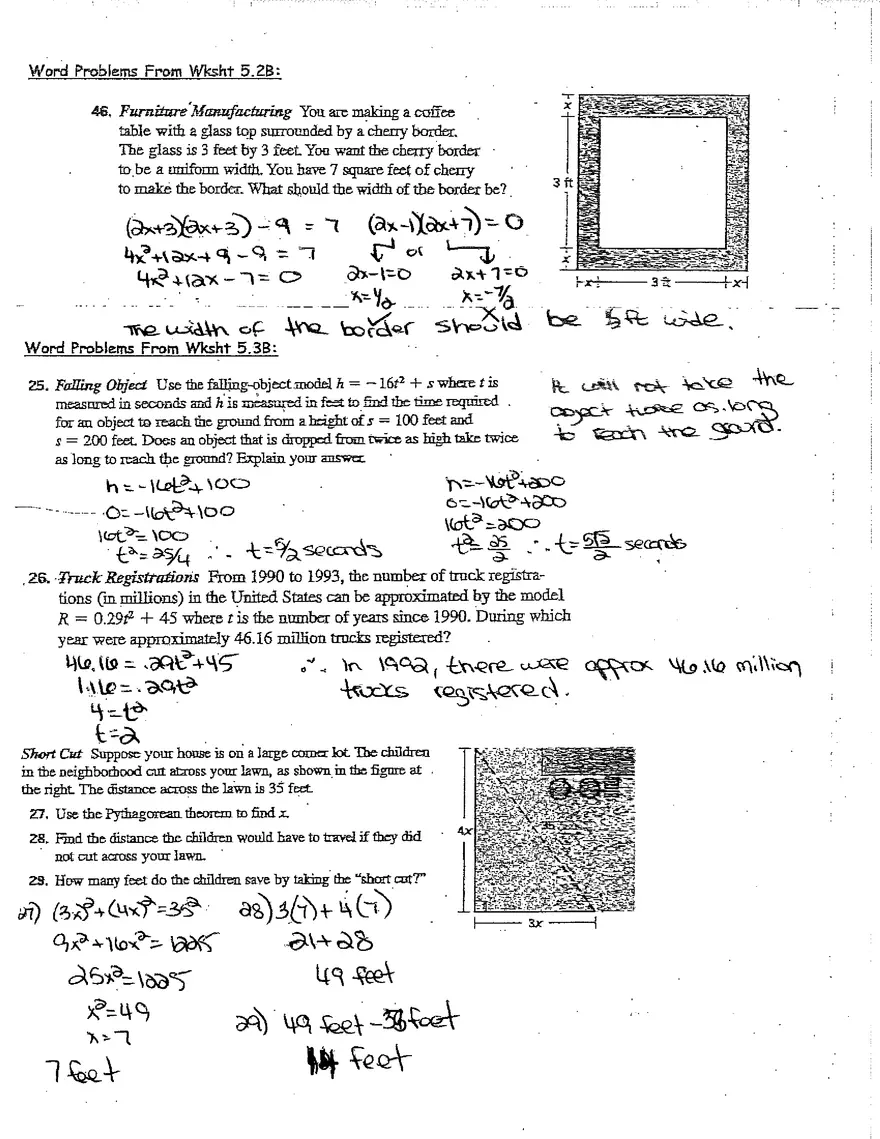 Word Problems From Wksht 5.2B:
46. Furniture Manufacturing You are making a coffee
table with a glass top surrounded by a cherry border.
The glass is 3 feet by 3 feet. You want the cherry border
to be a uniform width. You have 7 square feet of cherry
to make the border. What should the width of the border be?
x
3 ft
x
x
3 ft
x
(2x+3)(2x+3) - 9 = 7
4x²+12x+9-9 = 7
4x²+12x-7=0
(2x-1)(2x+7)=0
or
2x-1=0 2x+7=0
x=1/2 x=-7/2
The width of the border should be 1/2 ft wide.
Word Problems From Wksht 5.3B:
25. Falling Object Use the falling-object model h = -16t² + s where t is
measured in seconds and h is measured in feet to find the time required
for an object to reach the ground from a height of s = 100 feet and
s = 200 feet. Does an object that is dropped from twice as high take twice
as long to reach the ground? Explain your answer.
It will not take the
object twice as long
to reach the ground.
h=-16t²+100
0=-16t²+100
16t²=100
t²=25/4 ∴ t=5/2 seconds
h=-16t²+200
0=-16t²+200
16t²=200
t²=25/2 ∴ t=5√2/2 seconds
26. Truck Registrations From 1990 to 1993, the number of truck registra-
tions (in millions) in the United States can be approximated by the model
R = 0.29t² + 45 where t is the number of years since 1990. During which
year were approximately 46.16 million trucks registered?
46.16 = .29t²+45
1.16 = .29t²
4=t²
t=2
∴ In 1992, there were approx 46.16 million
trucks registered.
Short Cut Suppose your house is on a large corner lot. The children
in the neighborhood cut across your lawn, as shown in the figure at
the right. The distance across the lawn is 35 feet.
27. Use the Pythagorean theorem to find x.
28. Find the distance the children would have to travel if they did
not cut across your lawn.
29. How many feet do the children save by taking the "short cut?"
4x
35
3x
27) (3x)²+(4x)²=35²
9x²+16x²=1225
25x²=1225
x²=49
x=7
7 feet
28) 3(7)+4(7)
21+28
49 feet
29) 49 feet - 35 feet
14 feet